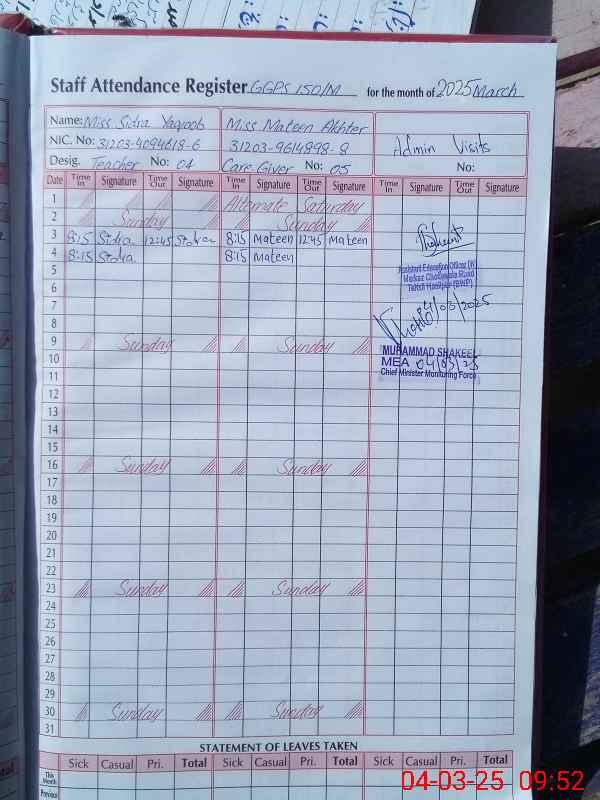 Staff Attendance Register GGPS 150/M for the month of 2025 March
Name: Miss Sidra Yaqoob Miss Mateen Akhter
NIC. No: 31203-4094618-6 31203-9614898-8 Admin Visits
Desig. Teacher No: 04 Care Giver No: 05 No:
Date Time In Signature Time Out Signature Time In Signature Time Out Signature Time In Signature Time Out Signature
1 Alternate Saturday
2 Sunday Sunday
3 8:15 Sidra 12:45 Sidra 8:15 Mateen 12:45 Mateen
4 8:15 Sidra 8:15 Mateen
5
Assistant Education Officer (W)
6
Tehsil Hasilpur (BWP)
7
04/03/2025
8
9 Sunday Sunday
MUHAMMAD SHAKEEL
10
MEA 04/03/25
11
Chief Minister Monitoring Force
12
13
14
15
16 Sunday Sunday
17
18
19
20
21
22
23 Sunday Sunday
24
25
26
27
28
29
30 Sunday Sunday
31
STATEMENT OF LEAVES TAKEN
Sick Casual Pri. Total Sick Casual Pri. Total Sick Casual Pri. Total
This Month
Previous
04-03-25 09:52